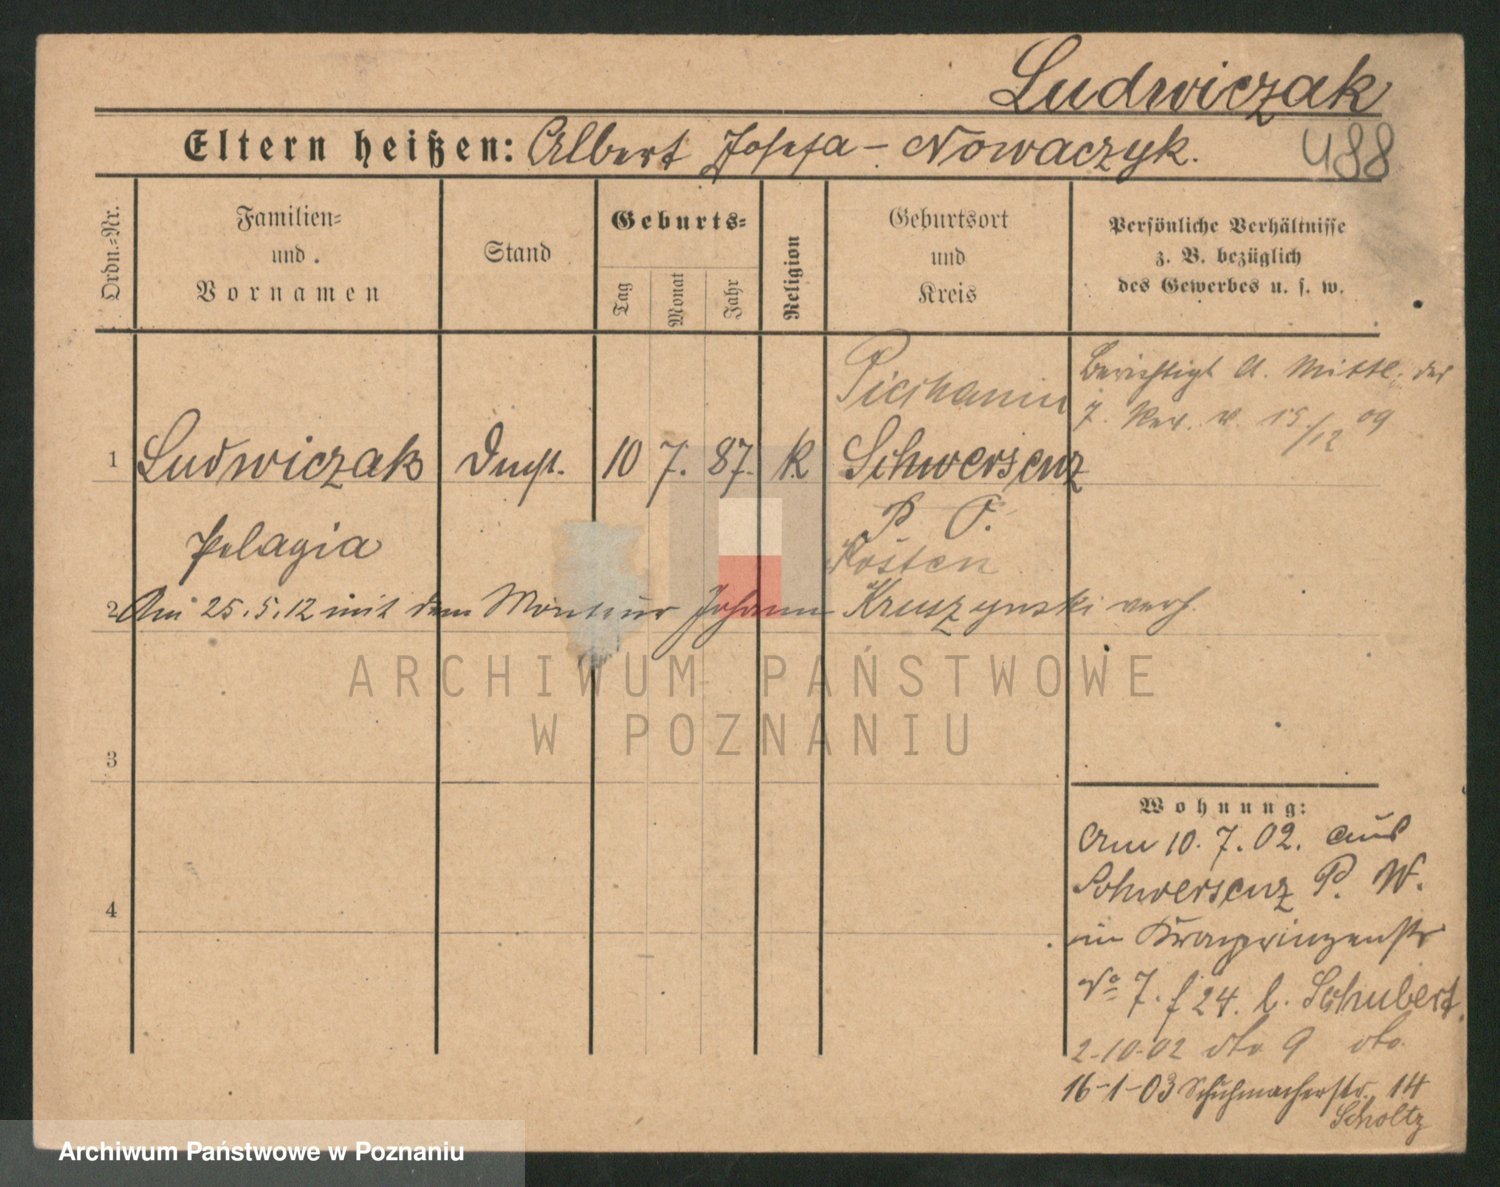 Ludwiczak
Eltern heißen: Albert Josefa - Nowaczyk.
488
Ordn.=Nr.
Familien=
und
Vornamen
Stand
Geburts=
Tag
Monat
Jahr
Religion
Geburtsort
und
Kreis
Persönliche Verhältnisse
z. B. bezüglich
des Gewerbes u. s. w.
Piechanin
Berichtigt lt. Mittl. der
7. Rev. v. 15/12 09
1 Ludwiczak Dmst. 10 7. 87. k Schwersenz
P. O.
Pelagia
Kosten
2 Am 25.5.12 mit dem Monteur Johann Kruszynski verh.
ARCHIWUM PAŃSTWOWE
W POZNANIU
3
4
Wohnung:
Am 10.7.02. aus
Schwersenz P. W.
in Kronprinzenstr
No 7. f 24. b. Schubert.
2-10-02 dto 9 dto.
16-1-03 Schuhmacherstr. 14
Scholtz
Archiwum Państwowe w Poznaniu